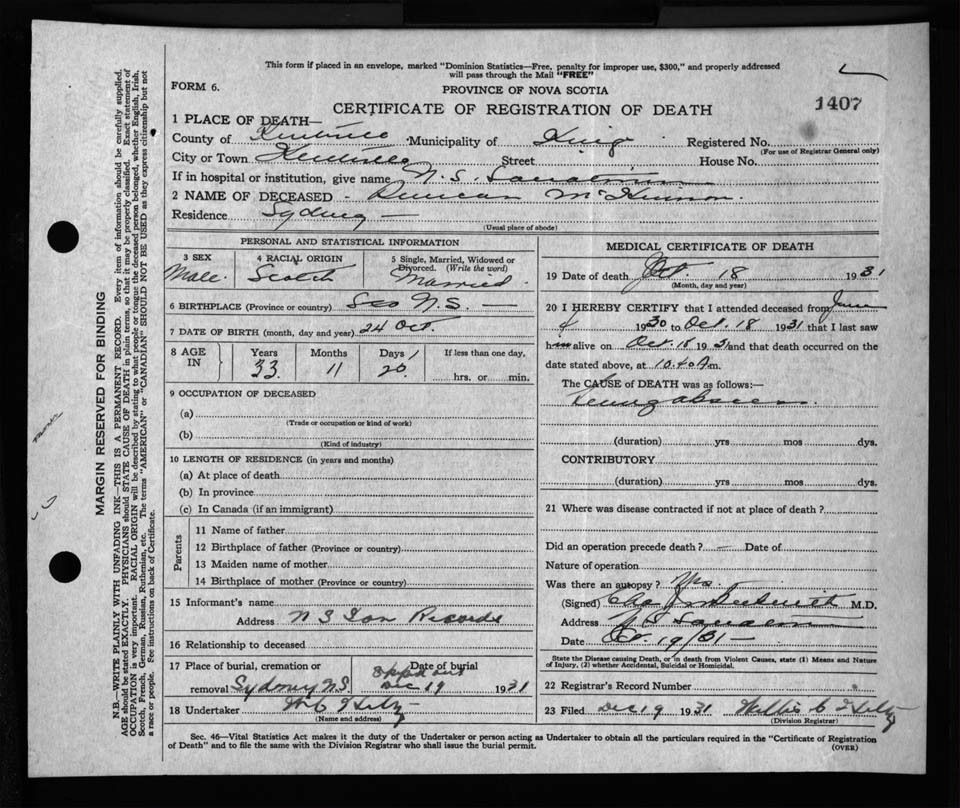 This form if placed in an envelope, marked "Dominion Statistics—Free, penalty for improper use, $300," and properly addressed
will pass through the Mail "FREE"
FORM 6.
PROVINCE OF NOVA SCOTIA
CERTIFICATE OF REGISTRATION OF DEATH
1407
1 PLACE OF DEATH—
County of Kentville Municipality of King Registered No.
(For use of Registrar General only)
City or Town Kentville Street House No.
If in hospital or institution, give name N. S. Sanatorium
2 NAME OF DECEASED - Duncan McKinnon.
Residence Sydney —
(Usual place of abode)
PERSONAL AND STATISTICAL INFORMATION
3 SEX
Male.
4 RACIAL ORIGIN
Scotch
5 Single, Married, Widowed or
Divorced. (Write the word)
Married.
6 BIRTHPLACE (Province or country) N.S. —
7 DATE OF BIRTH (month, day and year) 24 Oct.
8 AGE IN
Years Months Days If less than one day,
33 11 20 hrs. or min.
9 OCCUPATION OF DECEASED
(a)
(Trade or occupation or kind of work)
(b)
(Kind of industry)
10 LENGTH OF RESIDENCE (in years and months)
(a) At place of death
(b) In province
(c) In Canada (if an immigrant)
Parents
11 Name of father
12 Birthplace of father (Province or country)
13 Maiden name of mother
14 Birthplace of mother (Province or country)
15 Informant's name
Address N S San Records
16 Relationship to deceased
17 Place of burial, cremation or
removal Sydney N.S.
Date of burial
Dec 19 1931
18 Undertaker
(Name and address)
MEDICAL CERTIFICATE OF DEATH
19 Date of death Oct. 18 1931
(Month, day and year)
20 I HEREBY CERTIFY that I attended deceased from June
1930 to Oct. 18 1931 that I last saw
him alive on Oct. 18 1931 and that death occurred on the
date stated above, at 10.40 A.m.
The CAUSE of DEATH was as follows:—
Lung abscess.
(duration) yrs mos dys.
CONTRIBUTORY
(duration) yrs mos dys.
21 Where was disease contracted if not at place of death?
Did an operation precede death? — Date of
Nature of operation
Was there an autopsy? Yes.
(Signed) M.D.
Address N S Sanatorium
Date Oct. 19/31 —
State the Disease causing Death, or in death from Violent Causes, state (1) Means and Nature
of Injury, (2) whether Accidental, Suicidal or Homicidal.
22 Registrar's Record Number
23 Filed Dec 19 1931
(Division Registrar)
Sec. 46—Vital Statistics Act makes it the duty of the Undertaker or person acting as Undertaker to obtain all the particulars required in the "Certificate of Registration
of Death" and to file the same with the Division Registrar who shall issue the burial permit.
(OVER)
MARGIN RESERVED FOR BINDING
N.B.—WRITE PLAINLY WITH UNFADING INK—THIS IS A PERMANENT RECORD. Every item of information should be carefully supplied.
AGE should be stated EXACTLY. PHYSICIANS should STATE CAUSE OF DEATH in plain terms, so that it may be properly classified. Exact statement of
OCCUPATION is very important. RACIAL ORIGIN will be described by stating to what people or tongue the deceased person belonged, whether English, Irish,
Scotch, French, German, Russian, Ruthenian, etc. The terms "AMERICAN" or "CANADIAN" SHOULD NOT BE USED as they express citizenship but not
a race or people. See instructions on back of Certificate.